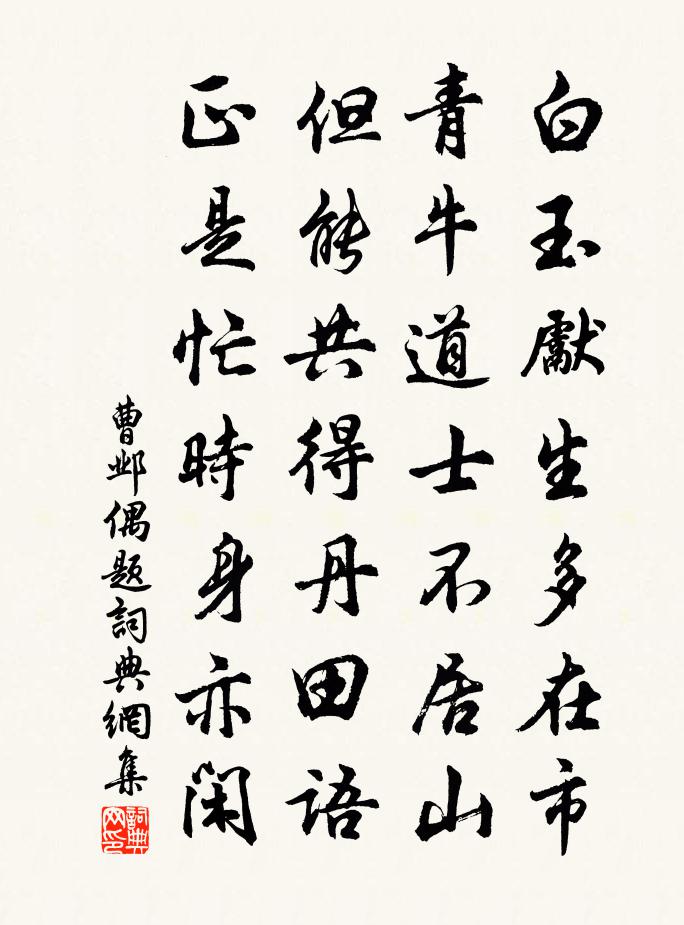 白玉獻生多在市
青牛道士不居山
但能共得丹田語
正是忙時身亦閑
曹邺偶题詞典網集
詞典网印